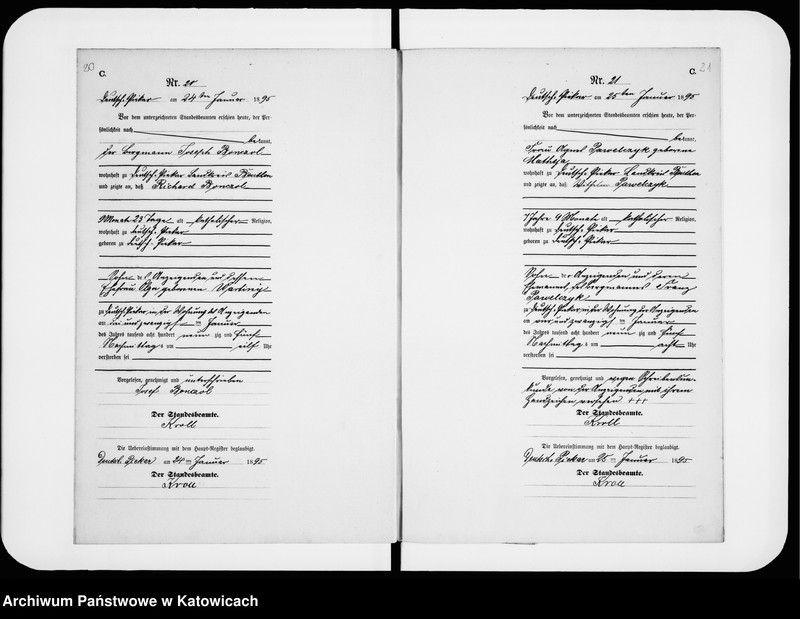 20
C.
Nr. 20
Deutsch-Piekar am 24ten Januar 1895
Vor dem unterzeichneten Standesbeamten erschien heute, der Per-
sönlichkeit nach
bekannt,
der Bergmann Joseph Bonczol
wohnhaft zu Deutsch-Piekar Landkreis Beuthen
und zeigte an, daß Richard Bonczol
9 Monate 23 Tage alt katholischer Religion,
wohnhaft zu Deutsch-Piekar
geboren zu Deutsch-Piekar
Sohn des Anzeigenden und dessen
Ehefrau geborenen
zu Deutsch-Piekar in der Wohnung des Anzeigenden
am drei und zwanzigsten Januar
des Jahres tausend acht hundert neun zig und fünf
Nachmittags um elf Uhr
verstorben sei
Vorgelesen, genehmigt und unterschrieben
Josef Bonczol
Der Standesbeamte.
Kroll
Die Uebereinstimmung mit dem Haupt-Register beglaubigt.
Deutsch-Piekar am 24ten Januar 1895
Der Standesbeamte.
Kroll
C. 21
Nr. 21
Deutsch-Piekar am 25ten Januar 1895
Vor dem unterzeichneten Standesbeamten erschien heute, der Per-
sönlichkeit nach
bekannt,
Frau Agnes Pawelczyk geborene
wohnhaft zu Deutsch-Piekar Landkreis Beuthen
und zeigte an, daß Wilhelm Pawelczyk
7 Jahre 9 Monate alt katholischer Religion,
wohnhaft zu Deutsch-Piekar
geboren zu Deutsch-Piekar
Sohn der Anzeigenden und deren
Ehemannes, des Bergmannes Franz
Pawelczyk
zu Deutsch-Piekar in der Wohnung der Anzeigenden
am vier und zwanzigsten Januar
des Jahres tausend acht hundert neun zig und fünf
Nachmittags um acht Uhr
verstorben sei
Vorgelesen, genehmigt und wegen Schreibensun-
kunde von der Anzeigenden mit ihrem
Handzeichen versehen +++
Der Standesbeamte.
Kroll
Die Uebereinstimmung mit dem Haupt-Register beglaubigt.
Deutsch-Piekar am 25ten Januar 1895
Der Standesbeamte.
Kroll
Archiwum Państwowe w Katowicach